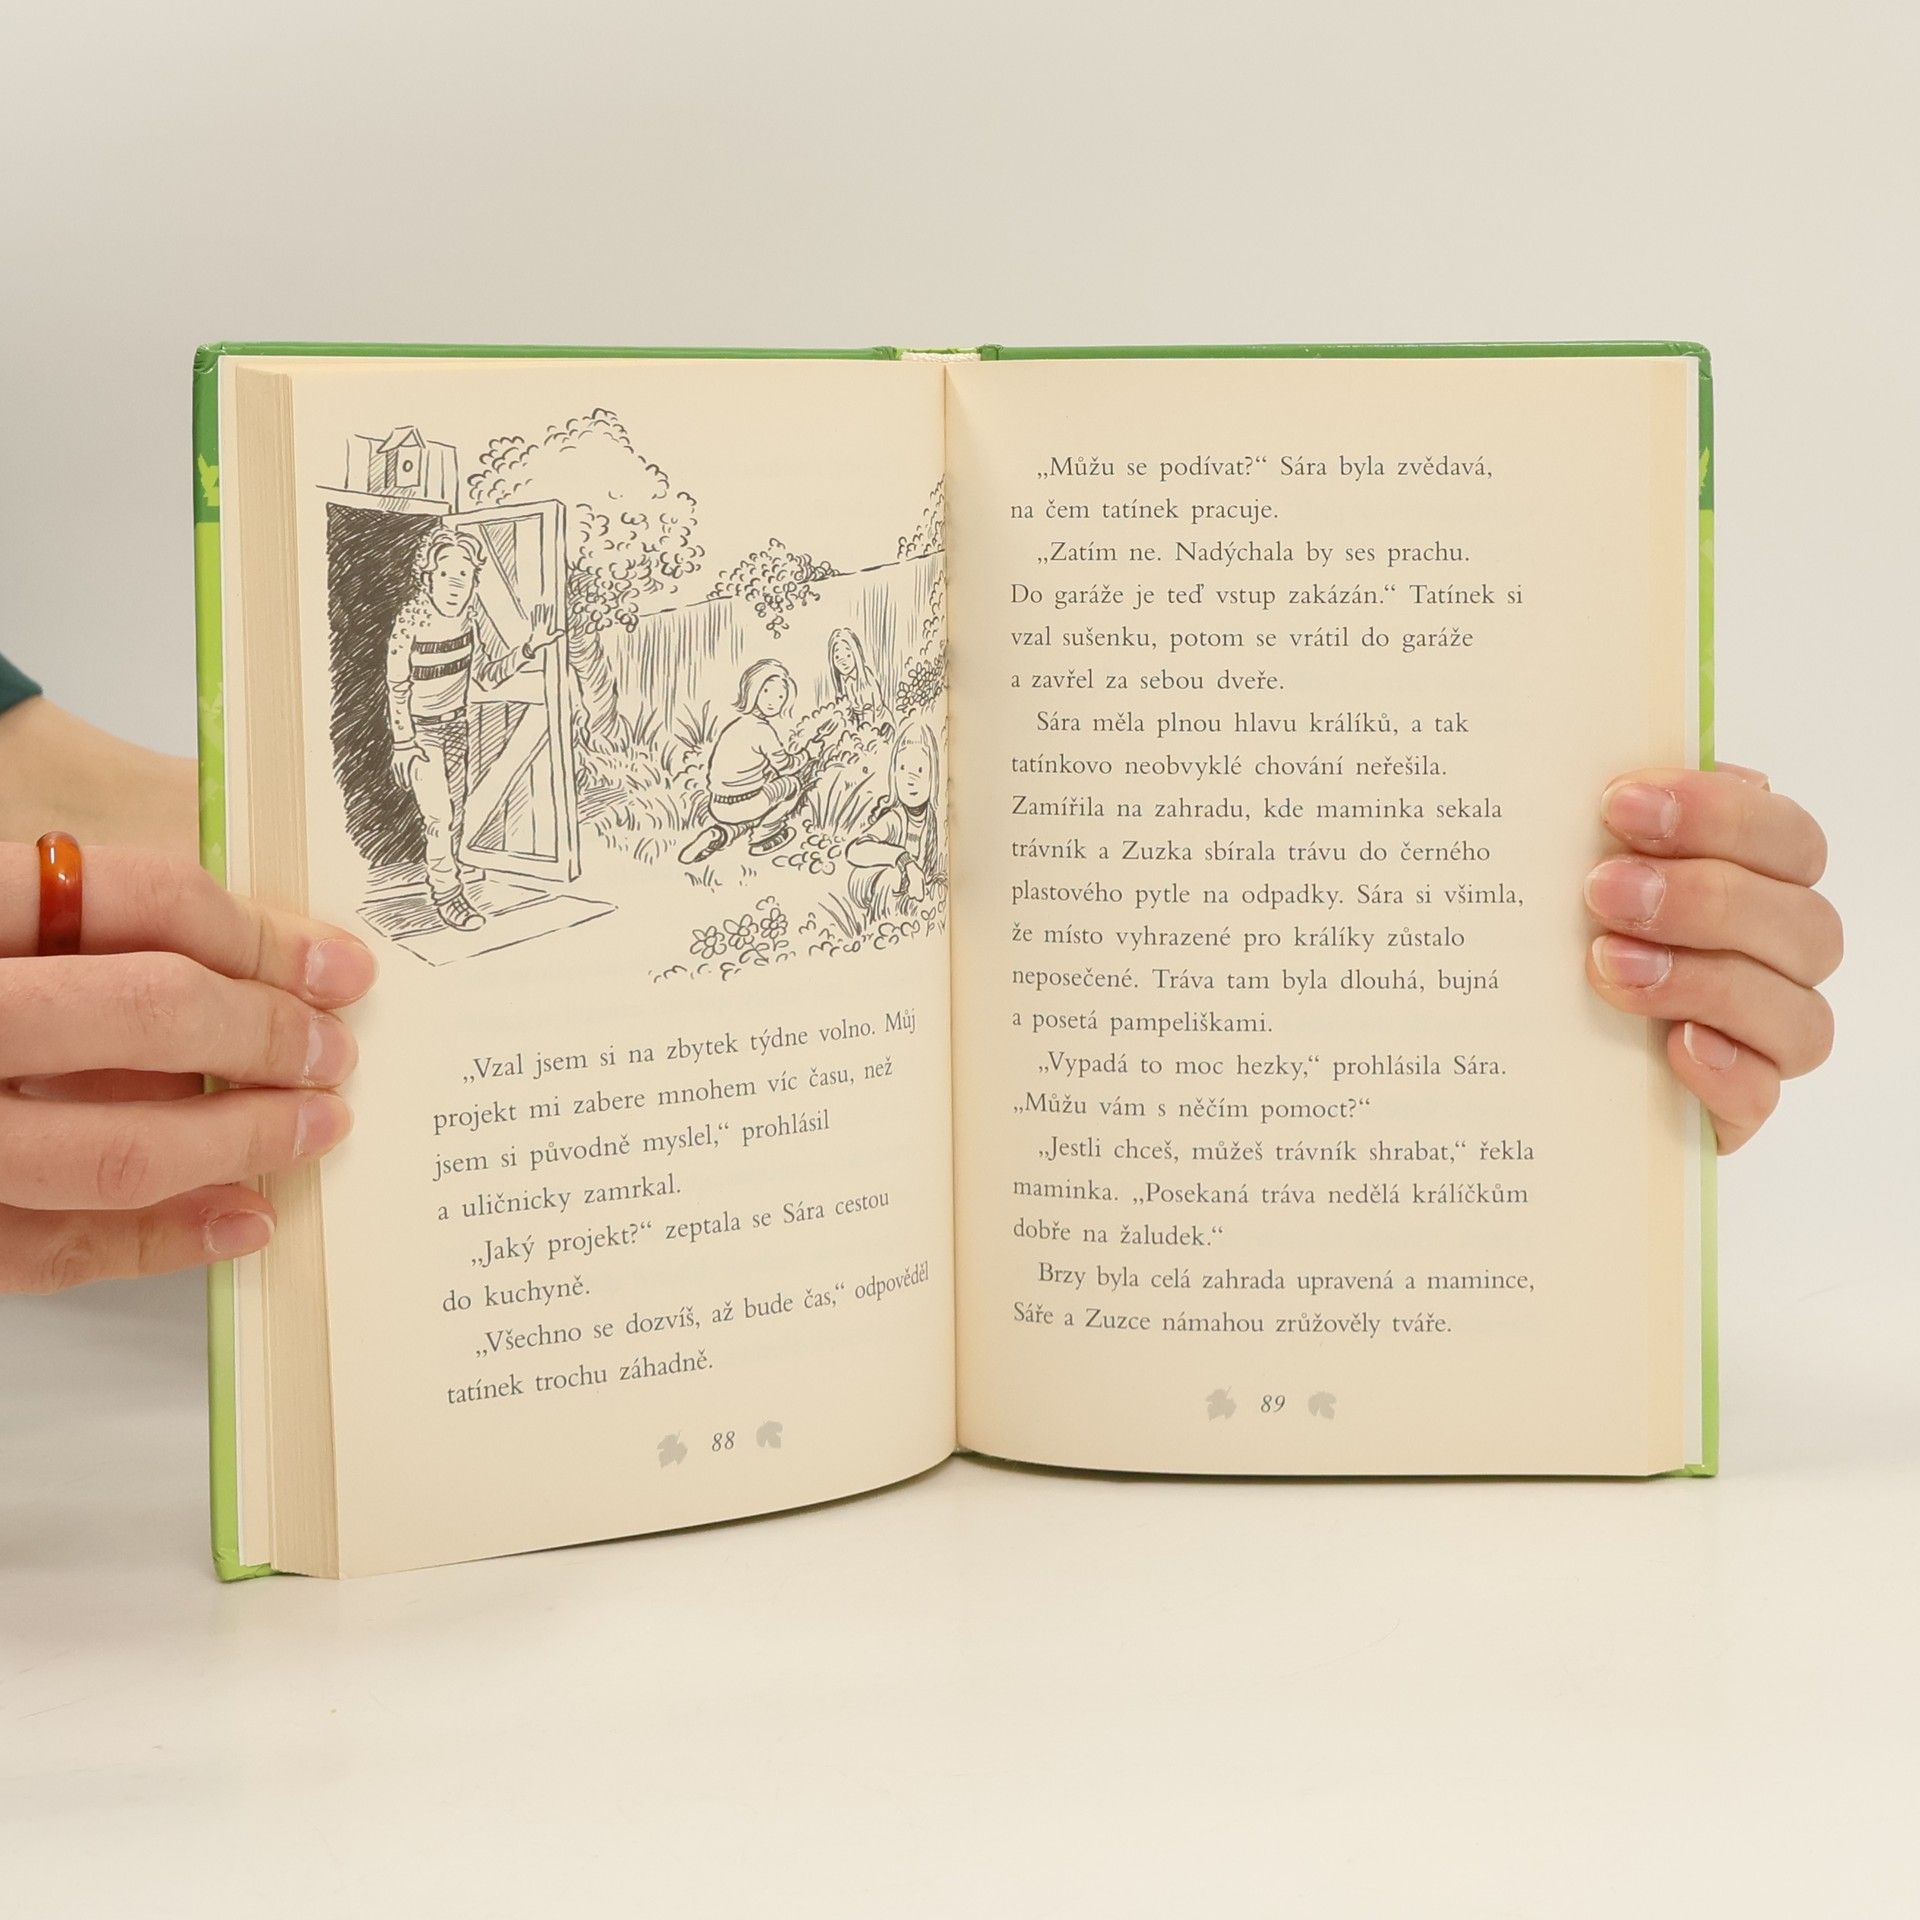 „Vzal jsem si na zbytek týdne volno. Můj
projekt mi zabere mnohem víc času, než
jsem si původně myslel,“ prohlásil
a uličnicky zamrkal.
„Jaký projekt?“ zeptala se Sára cestou
do kuchyně.
„Všechno se dozvíš, až bude čas,“ odpověděl
tatínek trochu záhadně.
88
„Můžu se podívat?“ Sára byla zvědavá,
na čem tatínek pracuje.
„Zatím ne. Nadýchala by ses prachu.
Do garáže je teď vstup zakázán.“ Tatínek si
vzal sušenku, potom se vrátil do garáže
a zavřel za sebou dveře.
Sára měla plnou hlavu králíků, a tak
tatínkovo neobvyklé chování neřešila.
Zamířila na zahradu, kde maminka sekala
trávník a Zuzka sbírala trávu do černého
plastového pytle na odpadky. Sára si všimla,
že místo vyhrazené pro králíky zůstalo
neposečené. Tráva tam byla dlouhá, bujná
a posetá pampeliškami.
„Vypadá to moc hezky,“ prohlásila Sára.
„Můžu vám s něčím pomoct?“
„Jestli chceš, můžeš trávník shrabat,“ řekla
maminka. „Posekaná tráva nedělá králíčkům
dobře na žaludek.“
Brzy byla celá zahrada upravená a mamince,
Sáře a Zuzce námahou zrůžověly tváře.
89